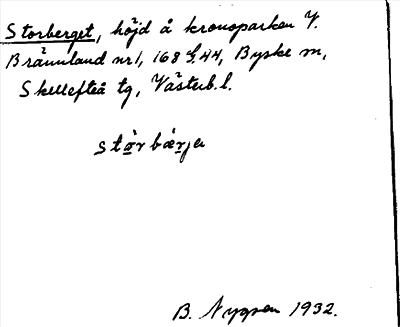 Storberget, höjd å kronoparken V.
Brännland nr 1, 168 f. 44, Byske sn,
Skellefteå tg, Västerb. l.
stò̱r bæ̀r̠je
B. Nygren 1932.